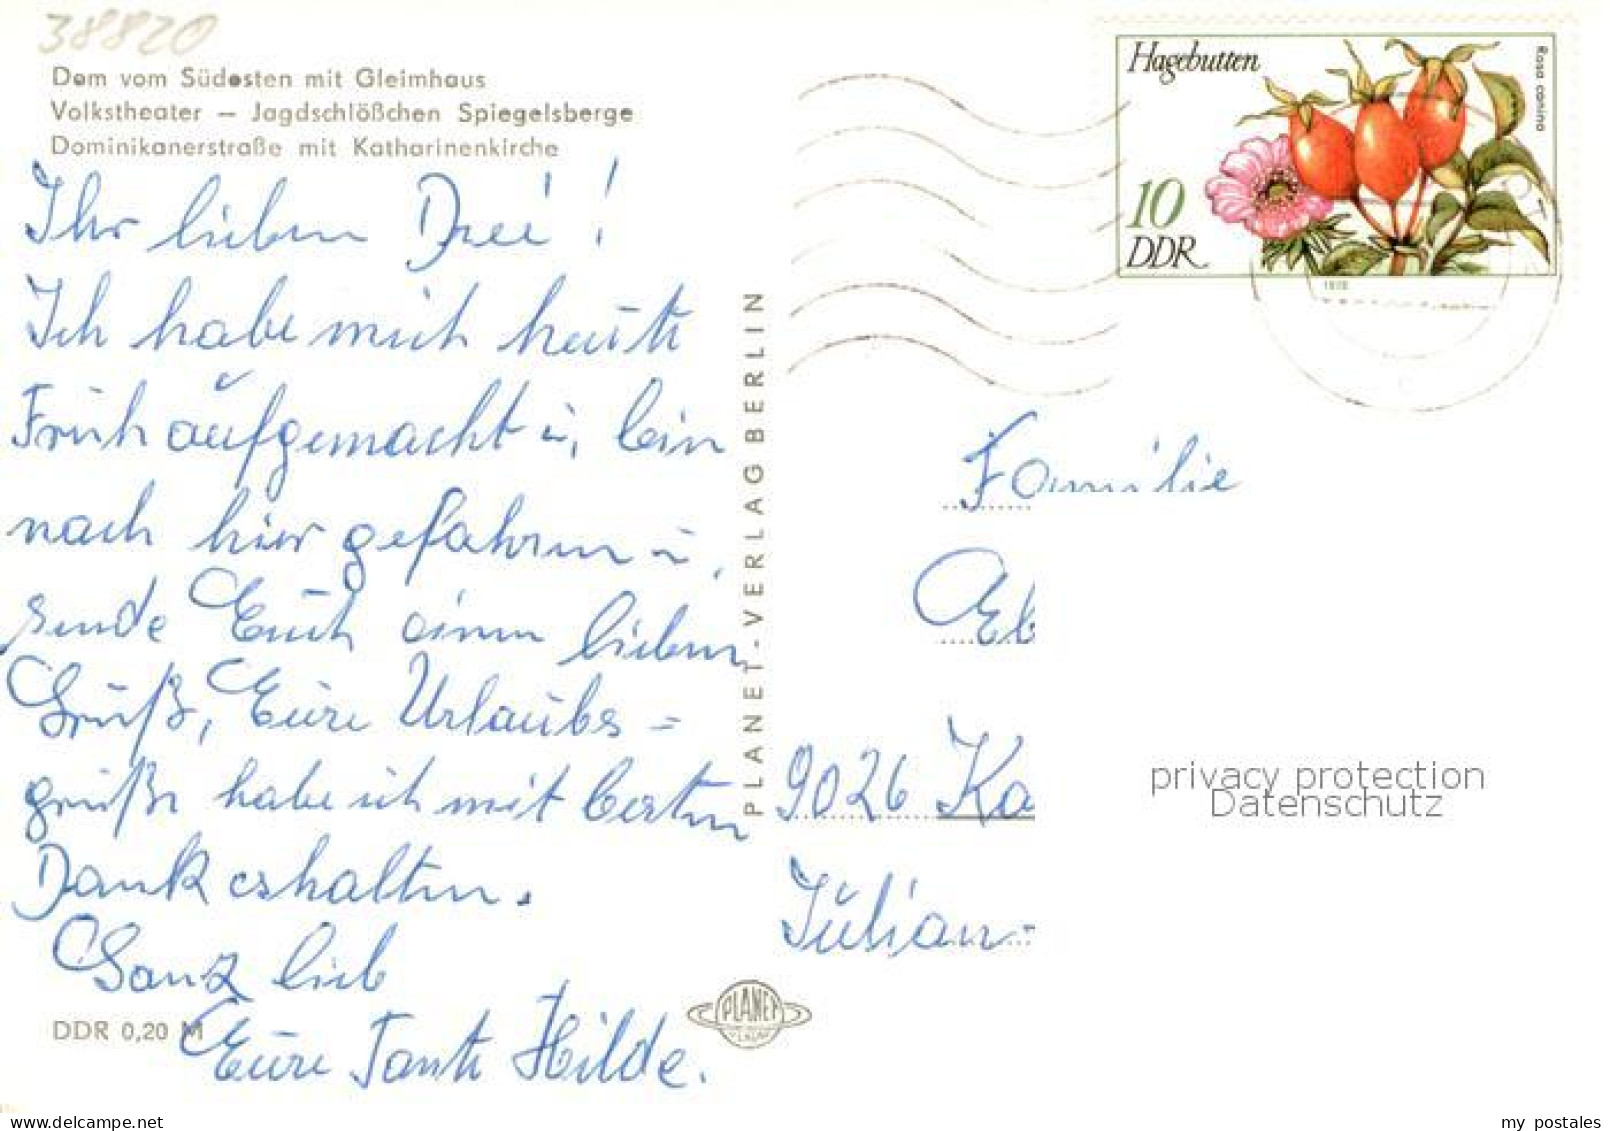 38820
Dom vom Südosten mit Gleimhaus
Volkstheater – Jagdschlößchen Spiegelsberge
Dominikanerstraße mit Katharinenkirche
Ihr lieben Drei!
Ich habe mich heute
Früh aufgemacht u, bin
nach hier gefahren u,
sende Euch einen lieben
Gruß, Eure Urlaubs=
grüße habe ich mit besten
Dank erhalten.
Ganz lieb
Eure Tante Hilde.
DDR 0,20 M
PLANET-VERLAG BERLIN
PLANET
VERLAG
Hagebutten
Rosa canina
10
DDR
1978
Familie
9026 Ka
Julian-
privacy protection
Datenschutz
delcampe.net
my_postales